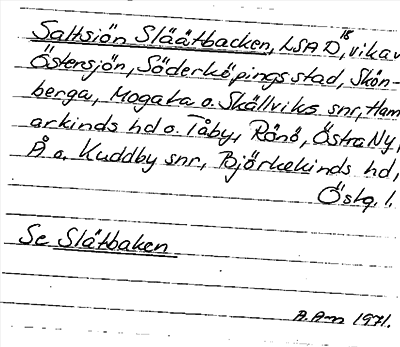 Saltsiön Släätbacken, LSA D¹⁵, vik av
Östersjön, Söderköpings stad, Skön-
berga, Mogata o. Skällviks snr, Ham
arkinds hd o. Tåby, Rönö, Östra Ny,
Å o. Kuddby snr, Björkekinds hd,
Östg. l.
Se Slätbaken
A.Am 1971.